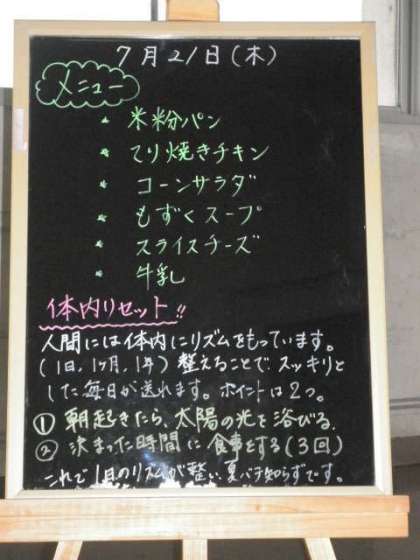 7月21日(木)
メニュー
* 米粉パン
* てり焼きチキン
* コーンサラダ
* もずくスープ
* スライスチーズ
* 牛乳
体内リセット!!
人間には体内にリズムをもっています。
(1日、1ヶ月、1年) 整えることで スッキリと
した毎日が送れます。ポイントは2つ。
① 朝起きたら、太陽の光を浴びる。
② 決まった時間に 食事をする(3回)
これで1日のリズムが整い、夏バテ知らずです。